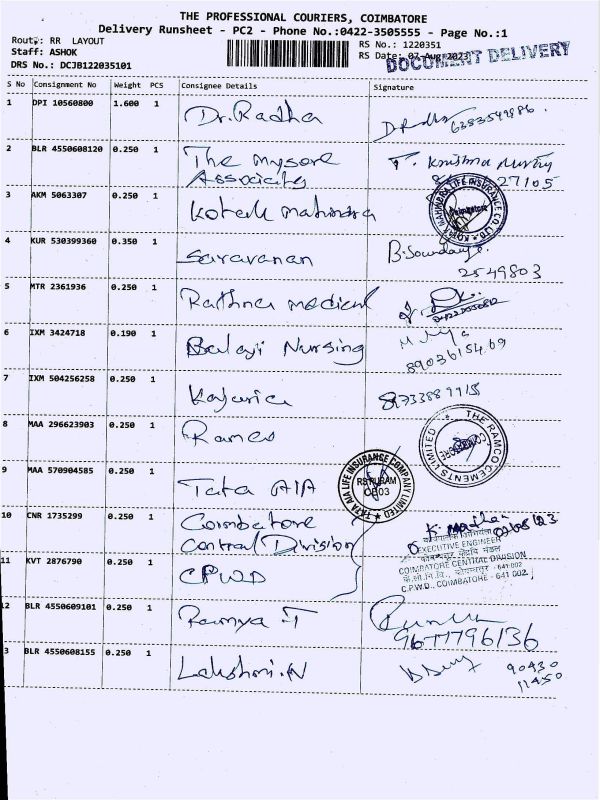 THE PROFESSIONAL COURIERS, COIMBATORE
Delivery Runsheet - PC2 - Phone No.:0422-3505555 - Page No.:1
Route: RR LAYOUT
RS No.: 1220351
Staff: ASHOK
RS Date: 07-Aug-2023
DOCUMENT DELIVERY
DRS No.: DCJB122035101
S No Consignment No Weight PCS Consignee Details Signature
1 DPI 10560800 1.600 1 Dr.Radha 6383549886
2 BLR 4550608120 0.250 1 The mysore
Associates
T. Krishna Murthy
27105
3 AKM 5063307 0.250 1 kotak mahindra
KOTAK MAHINDRA LIFE INSURANCE CO. LTD.
Coimbatore
4 KUR 530399360 0.350 1 Saravanan
2549803
5 MTR 2361936 0.250 1 Rathna medical
6 IXM 3424718 0.190 1 Balaji Nursing
8903615469
7 IXM 504256258 0.250 1 Kajaria
8 MAA 296623903 0.250 1 Ramco
THE RAMCO CEMENTS LIMITED
COIMBATORE
9 MAA 570904585 0.250 1 Tata AIA
TATA AIA LIFE INSURANCE COMPANY LIMITED
RS PURAM
10 CNR 1735299 0.250 1 Coimbatore
Central Division
EXECUTIVE ENGINEER
COIMBATORE CENTRAL DIVISION
C.P.W.D., COIMBATORE - 641 002.
11 KVT 2876790 0.250 1 CPWD
12 BLR 4550609101 0.250 1 Ramya T
9677796136
3 BLR 4550608155 0.250 1 Lakshmi.N
90430
11450